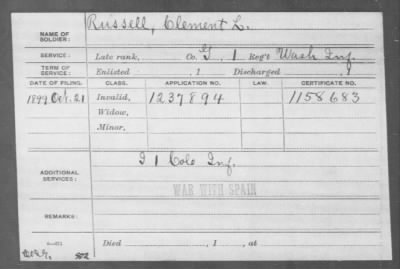 NAME OF SOLDIER: Russell, Clement L.
SERVICE: Late rank, Co. G, 1 Reg't Wash Inf.
TERM OF SERVICE: Enlisted , 1 Discharged , 1
DATE OF FILING. CLASS. APPLICATION NO. LAW. CERTIFICATE NO.
1899 Oct. 21 Invalid, 1237894 1158683
Widow,
Minor,
ADDITIONAL SERVICES: I 1 Colo Inf.
WAR WITH SPAIN
REMARKS:
Died , 1 , at